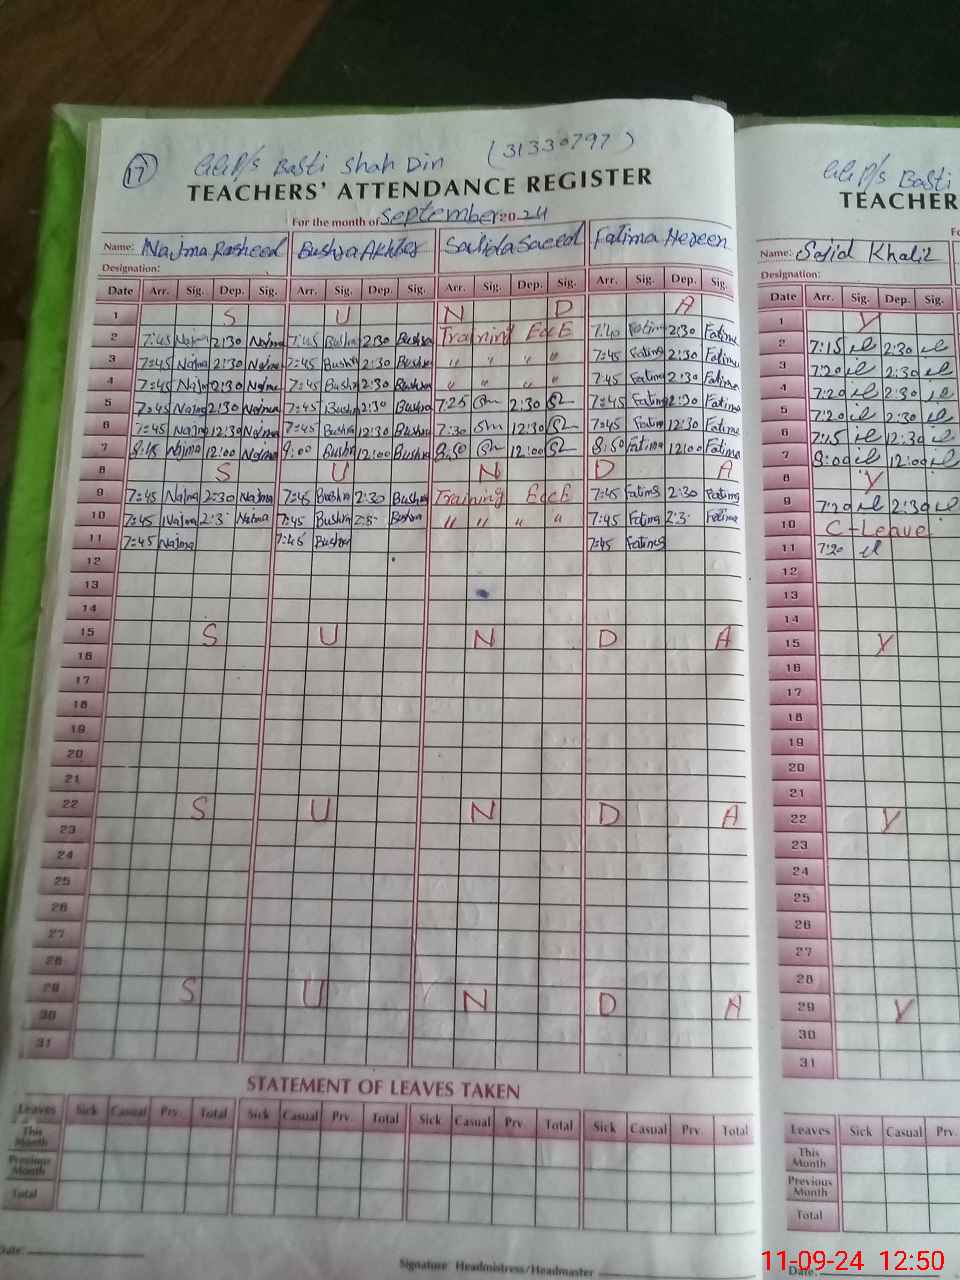 17 GGP/s Basti Shah Din (31330797)
TEACHERS' ATTENDANCE REGISTER
For the month of September 2024
Name: Najma Rasheed Bushra Akhter Sajida Saeed Fatima Nereen
Designation:
Date Arr. Sig. Dep. Sig. Arr. Sig. Dep. Sig. Arr. Sig. Dep. Sig. Arr. Sig. Dep. Sig.
1 S U N D A
2 7:45 Najma 2:30 Najma 7:45 Bushra 2:30 Bushra Training EccE 7:40 Fatima 2:30 Fatima
3 7:45 Najma 2:30 Najma 7:45 Bushra 2:30 Bushra " " " " 7:45 Fatima 2:30 Fatima
4 7:45 Najma 2:30 Najma 7:45 Bushra 2:30 Bushra " " " " 7:45 Fatima 2:30 Fatima
5 7:45 Najma 2:30 Najma 7:45 Bushra 2:30 Bushra 7:25 2:30 7:45 Fatima 2:30 Fatima
6 7:45 Najma 12:30 Najma 7:45 Bushra 12:30 Bushra 7:30 12:30 7:45 Fatima 12:30 Fatima
7 8:45 Najma 12:00 Najma 9:00 Bushra 12:00 Bushra 8:50 12:00 8:50 Fatima 12:00 Fatima
8 S U N D A
9 7:45 Najma 2:30 Najma 7:45 Bushra 2:30 Bushra Training EccE 7:45 Fatima 2:30 Fatima
10 7:45 Najma 2:3 Najma 7:45 Bushra 2:3 Bushra " " " " 7:45 Fatima 2:3 Fatima
11 7:45 Najma 7:45 Bushra 7:45 Fatima
12
13
14
15 S U N D A
16
17
18
19
20
21
22 S U N D A
23
24
25
26
27
28
29 S U N D A
30
31
STATEMENT OF LEAVES TAKEN
Leaves Sick Casual Prv. Total Sick Casual Prv. Total Sick Casual Prv. Total Sick Casual Prv. Total
This Month
Previous Month
Total
Date:
Signature Headmistress/Headmaster
GGP/s Basti
TEACHER
Name: Sajid Khalil
Designation:
Date Arr. Sig. Dep. Sig.
1 Y
2 7:15 2:30
3 7:20 2:30
4 7:20 2:30
5 7:20 2:30
6 7:15 12:30
7 9:00 12:00
8 Y
9 7:20 2:30
10 C-Leave
11 7:20
12
13
14
15 Y
16
17
18
19
20
21
22 Y
23
24
25
26
27
28
29 Y
30
31
Leaves Sick Casual Prv.
This Month
Previous Month
Total
Date:
11-09-24 12:50